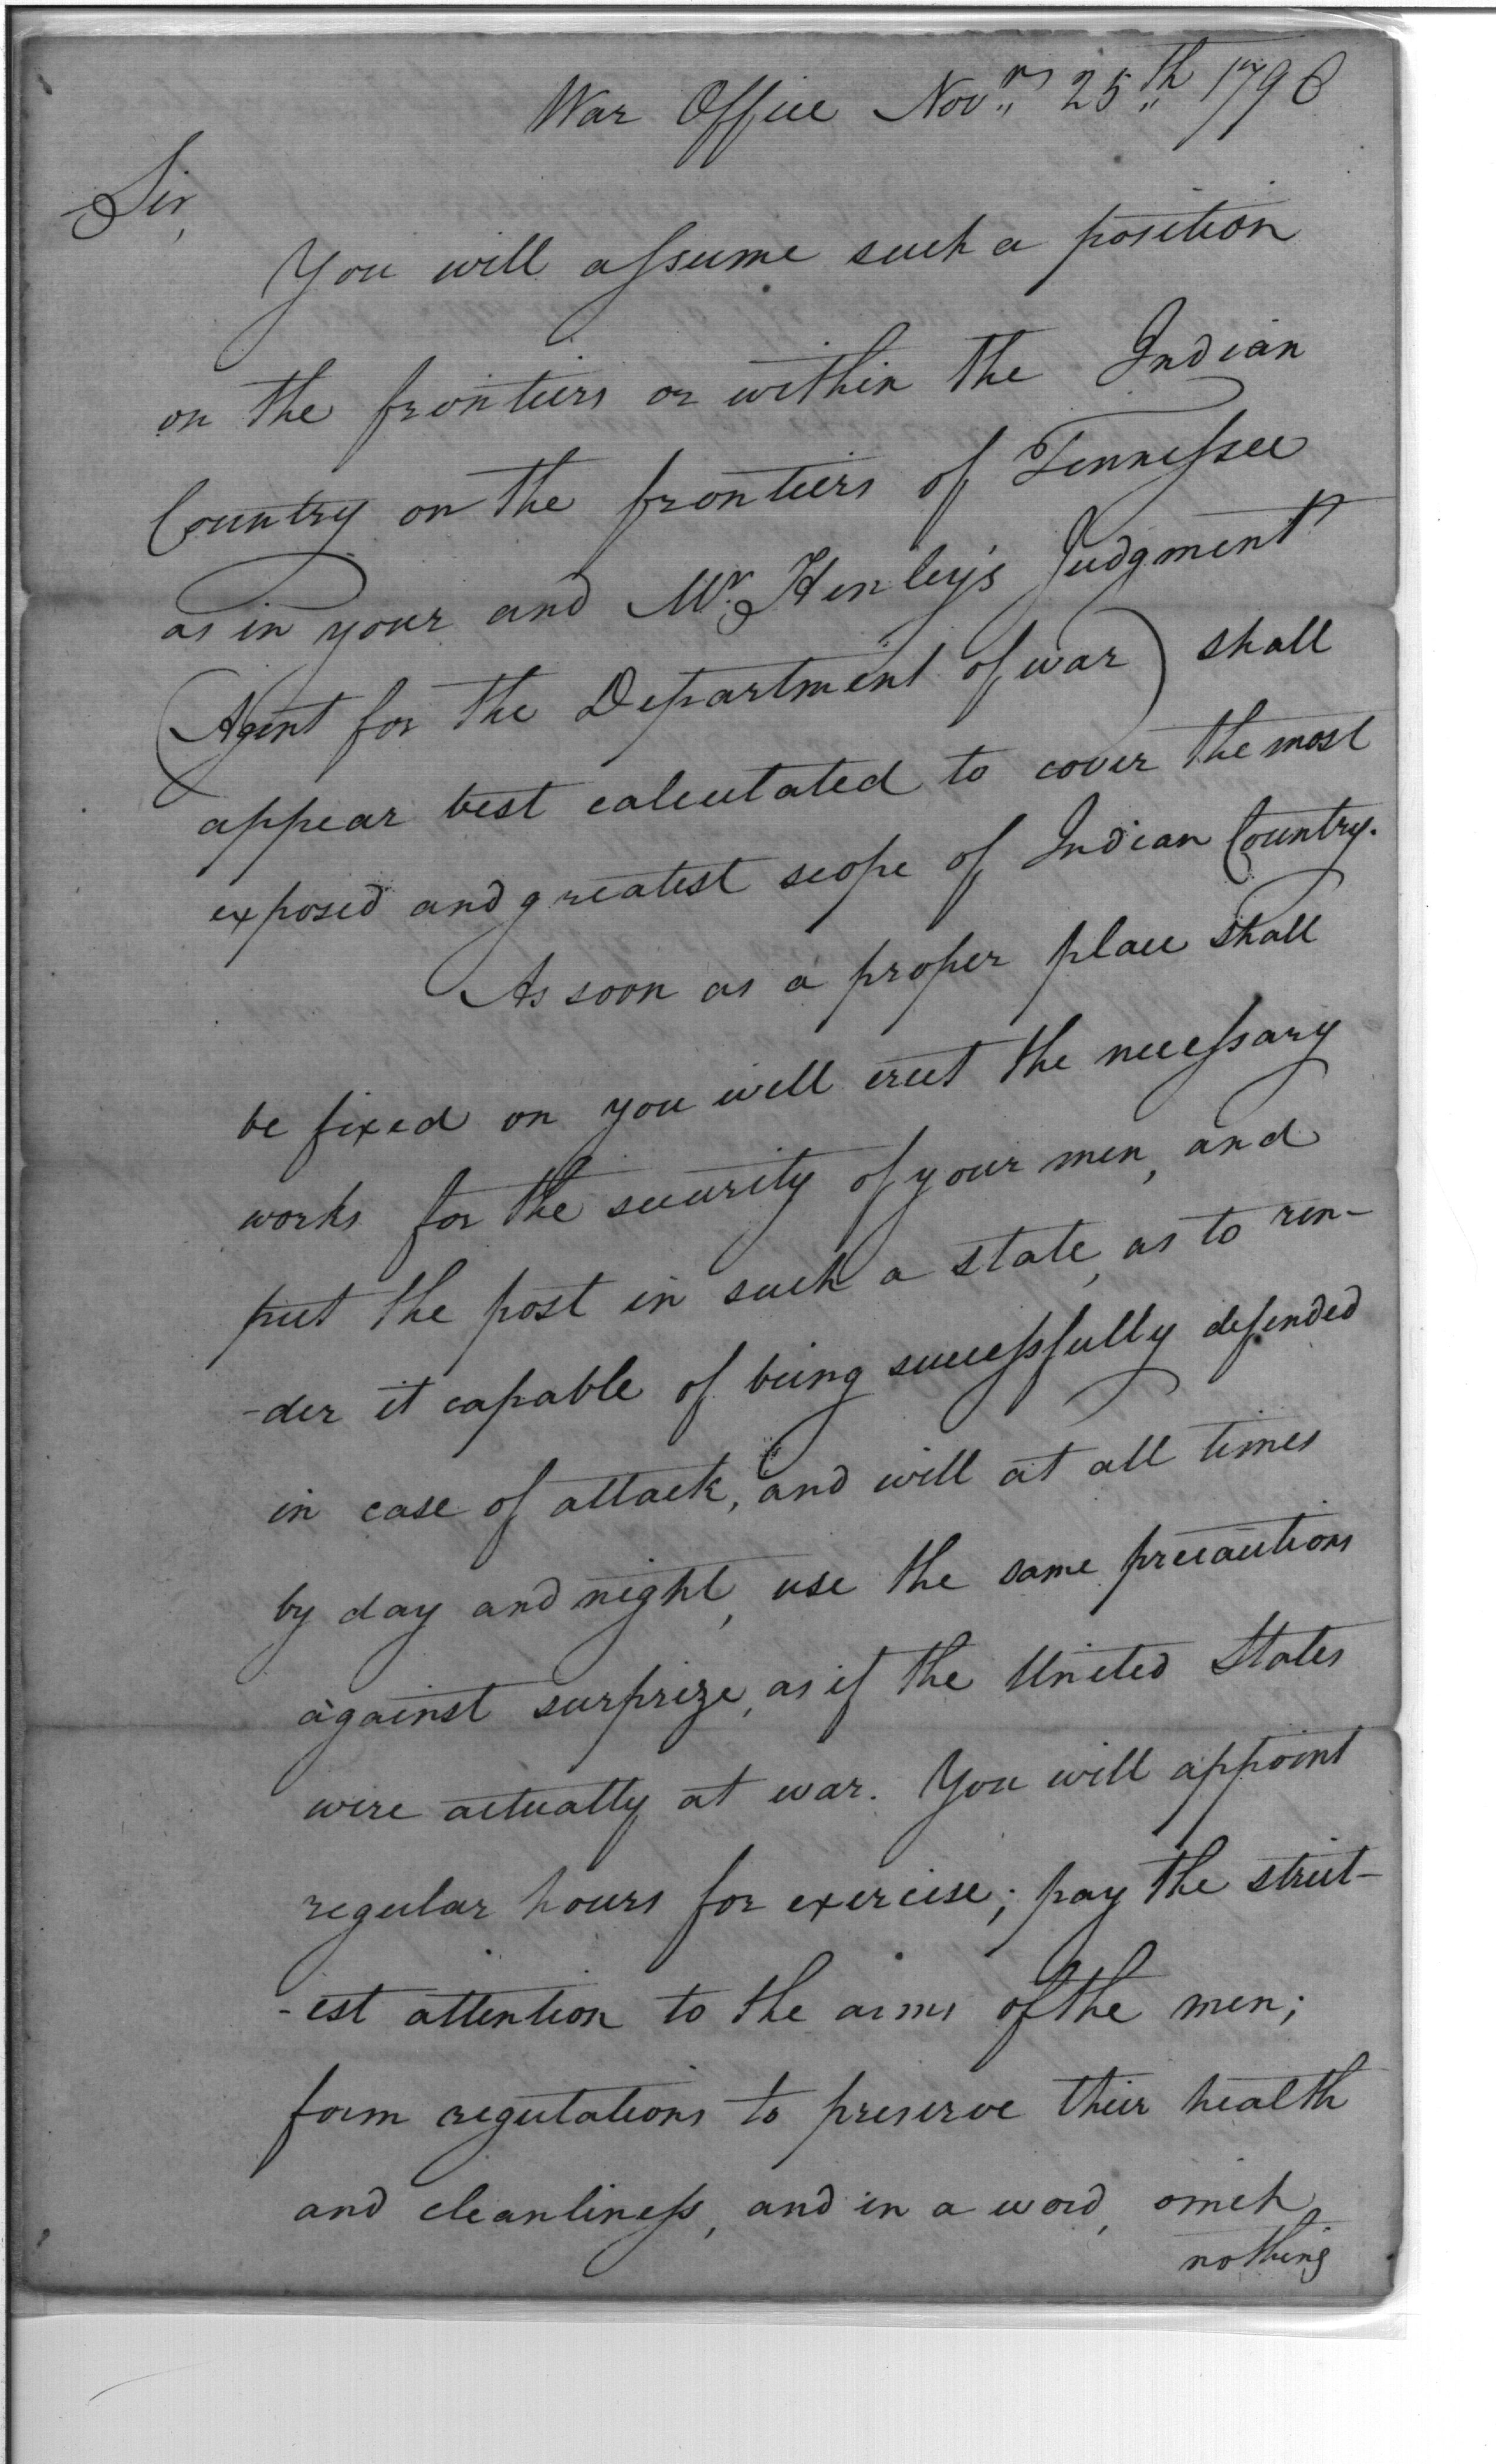 War Office Novr. 25th 1796
Sir,
You will assume such a position
on the frontiers or within the Indian
Country on the frontiers of Tennessee
as in your and Mr. Henley's Judgment
(Agent for the Department of war) shall
appear best calculated to cover the most
exposed and greatest scope of Indian Country.
As soon as a proper place shall
be fixed on you will erect the necessary
works for the security of your men, and
put the post in such a state, as to ren-
-der it capable of being successfully defended
in case of attack, and will at all times
by day and night, use the same precautions
against surprize, as if the United States
were actually at war. You will appoint
regular hours for exercise; pay the strict-
-est attention to the arms of the men;
form regulations to preserve their health
and cleanliness, and in a word, omit
nothing